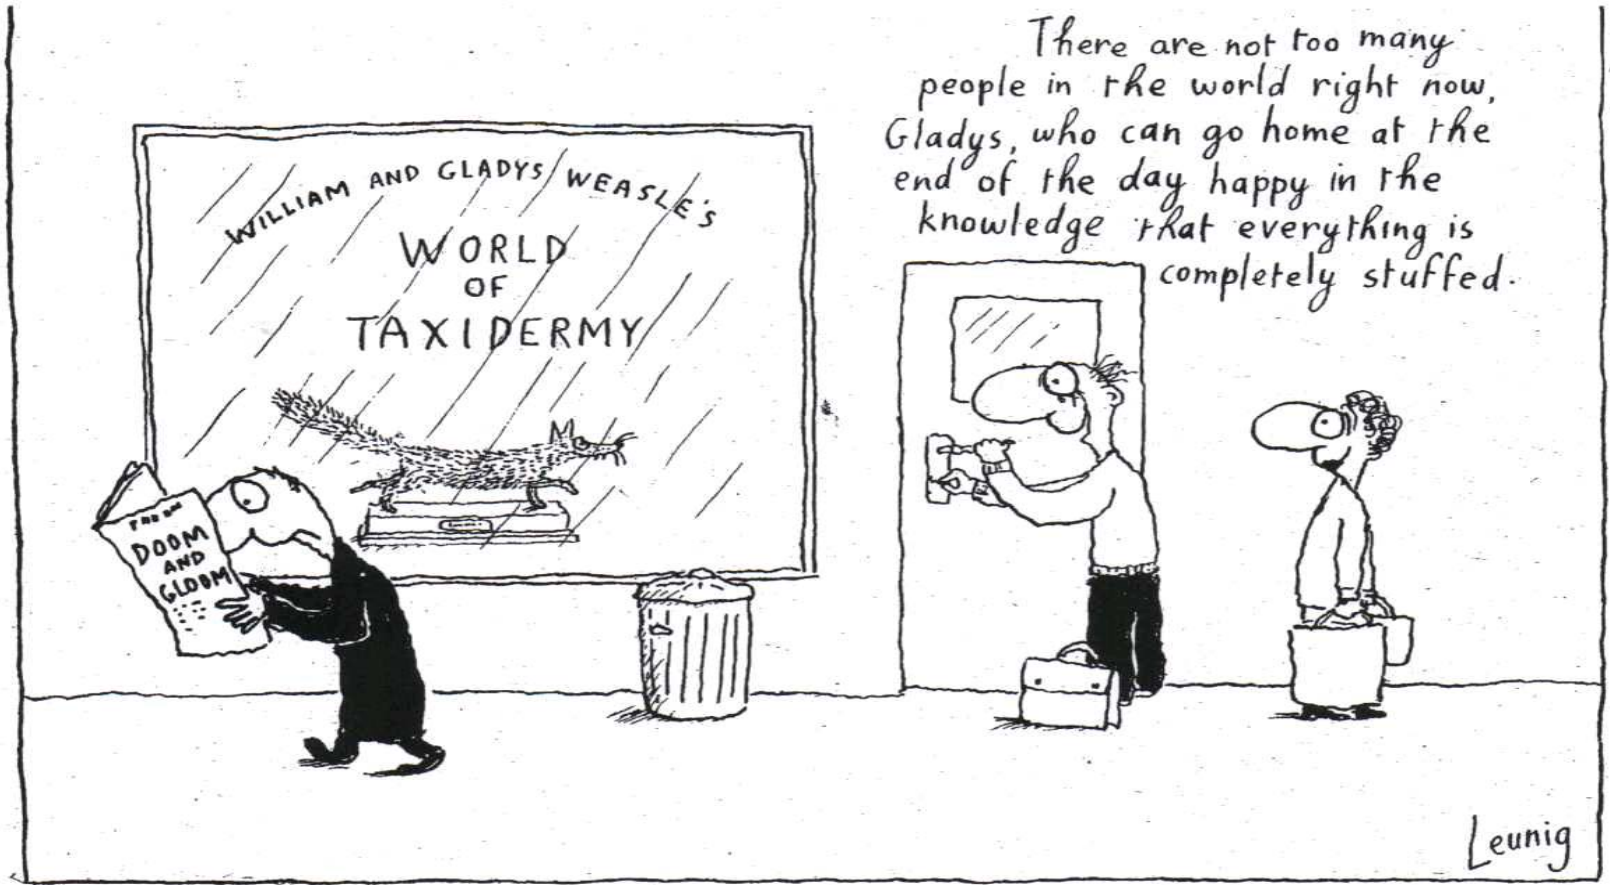 There are not too many
people in the world right now,
Gladys, who can go home at the
end of the day happy in the
knowledge that everything is
completely stuffed.
WILLIAM AND GLADYS WEASLE'S
WORLD
OF
TAXIDERMY
DOOM
AND
GLOOM
Leunig